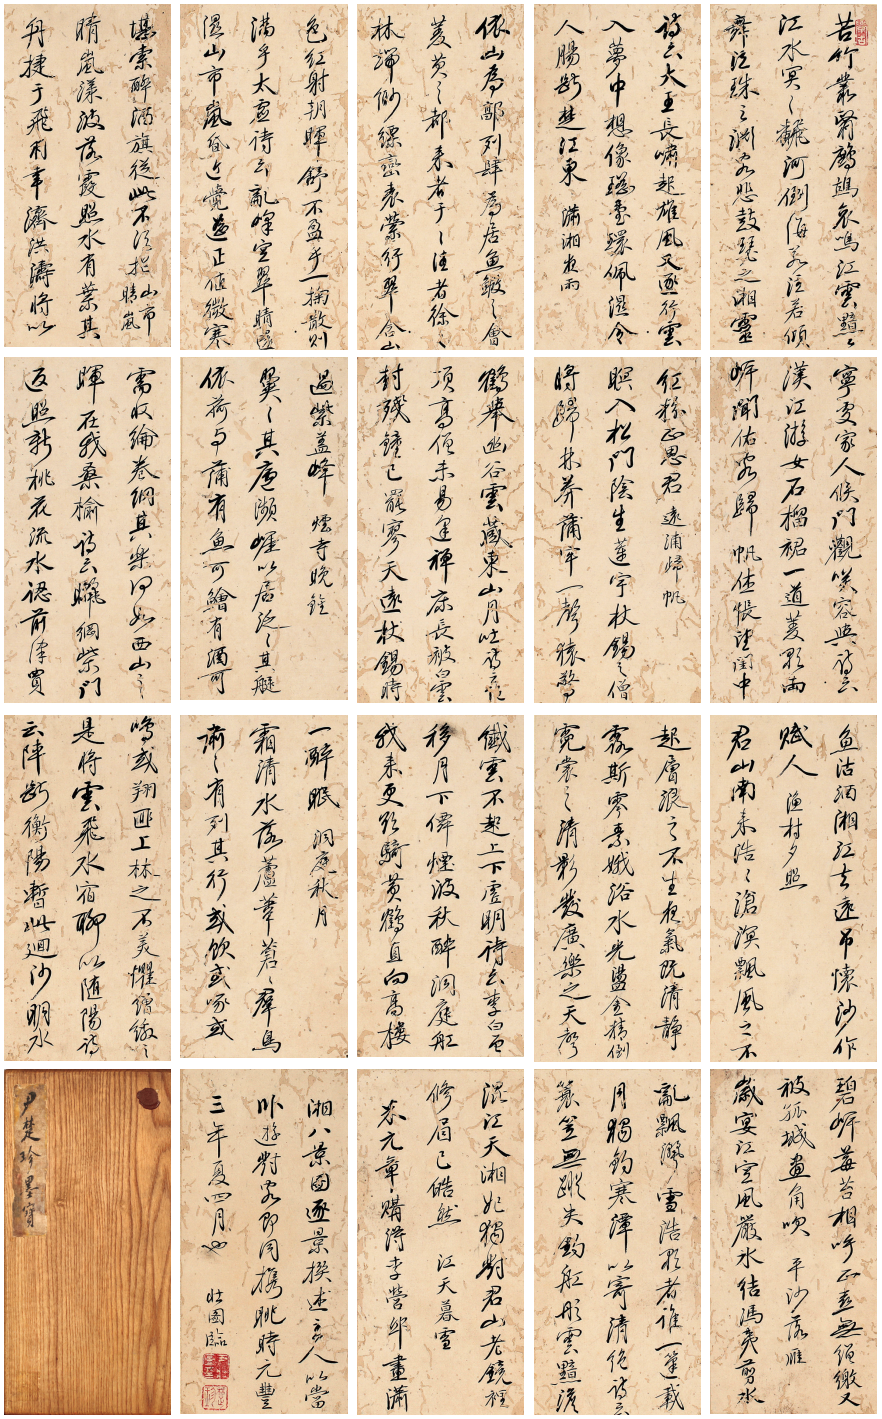 苦竹叢翳鷓鴣哀鳴江雲黯〻
江水冥〻翻河倒海若注若傾
舞泣珠之淵客悲鼓琴之湘靈
詩云大王長嘯起雄風又逐行雲
入夢中想像瑤臺環佩濕令
人腸斷楚江東 瀟湘夜雨
依山為郭列肆為居魚鰕之會
菱芡之都來者于〻往者徐〻
林端緲縹巒表縈行翠含山
色紅射朝暉舒不盈乎一掬散則
滿乎太虛詩云亂峰空翠晴還
濕山市嵐昏近覺遙正值微寒
堪索醉酒旗從此不須招 山市晴嵐
晴嵐漾波落霞照水有葉其
舟捷于飛羽幸濟洪濤將以
寧處家人候門觀笑容與詩云
漢江游女石榴裙一道菱歌兩
岸聞估客歸帆休悵望閨中
紅粉正思君 遠浦歸帆
暝入松門陰生蓮宇杖錫之僧
將歸林莽蒲牢一聲猿驚
鶴舉幽谷雲藏東山月吐詩云絕
頂高僧未易逢禪床長被白雲
封殘鐘已罷寥天遠杖錫時
過紫蓋峰 煙寺晚鐘
翼〻其廬瀕崖以居泛〻其艇
依荷與蒲有魚可鱠有酒可
需收綸卷網其樂何如西山之
暉在我桑榆詩云曬網柴門
返照新桃花流水認前津買
魚沽酒湘江去遠弔懷沙作
賦人 漁村夕照
君山南來浩〻滄溟飄風之不
起層浪之不生夜氣既清靜
露斯零素娥浴水光盪金精倒
霓裳之清影發廣樂之天聲
纖雲不起上下虛明詩云李白曾
移月下僊煙波秋醉洞庭舡
我來更欲騎黃鶴直向高樓
一醉眠 洞庭秋月
霜清水落蘆葦蒼〻群鳥
肅〻有列其行或飲或啄或
鳴或翔匪上林之不美懼矰繳之
是將雲飛水宿聊以隨陽詩
云陣斷衡陽暫此迴沙明水
碧岸莓苔相呼正喜無矰繳又
被孤城畫角吹 平沙落雁
歲宴江空風嚴水結馮夷剪水
亂飄灑雪浩歌者誰一篷載
月獨釣寒潭以寄清絕詩云
蓑笠無蹤失釣舡彤雲黯澹
混江天湘妃獨對君山老鏡裡
修眉已皓然 江天暮雪
米元章購得李營邱畫瀟
湘八景圖逐景撰述主人以當
臥遊對客即同攜眺時元豐
三年夏四月也 壯圖臨
尹楚珍墨寶